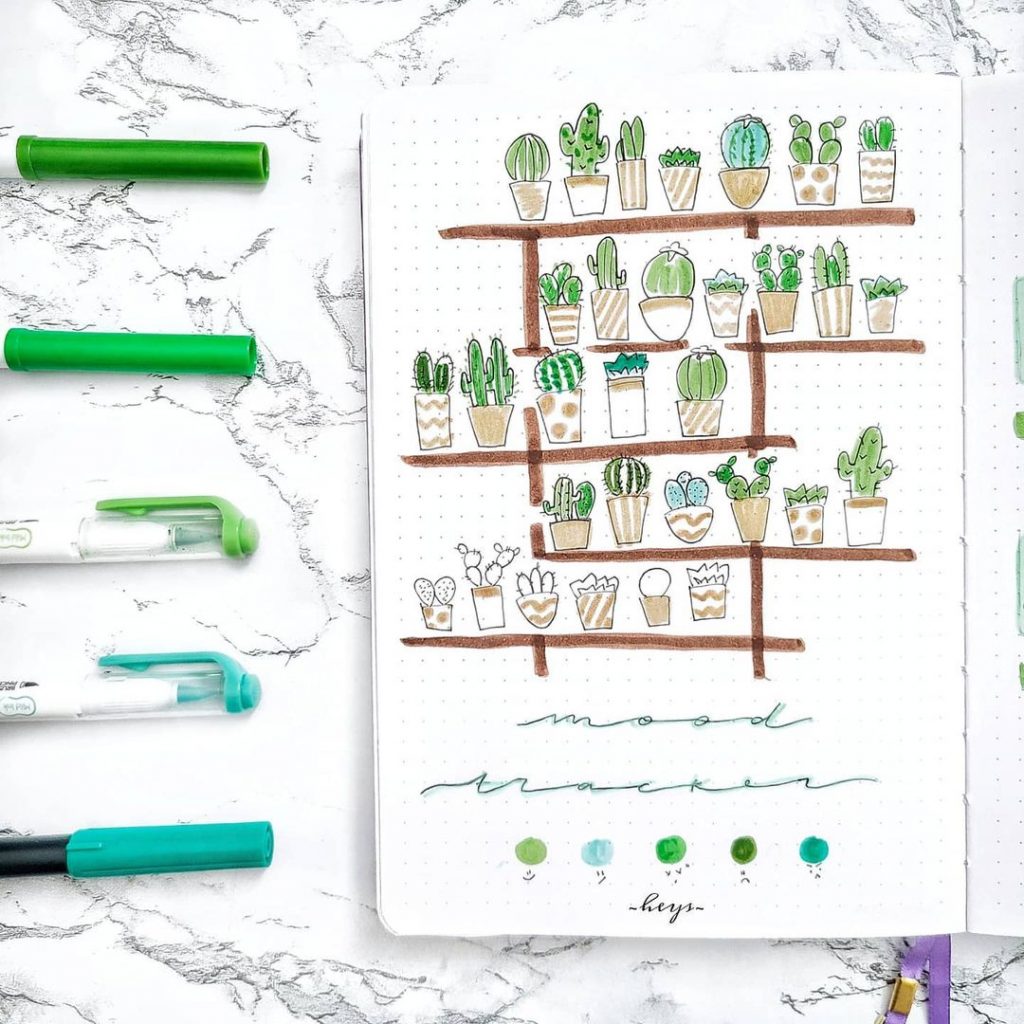 mood
tracker
~heys~